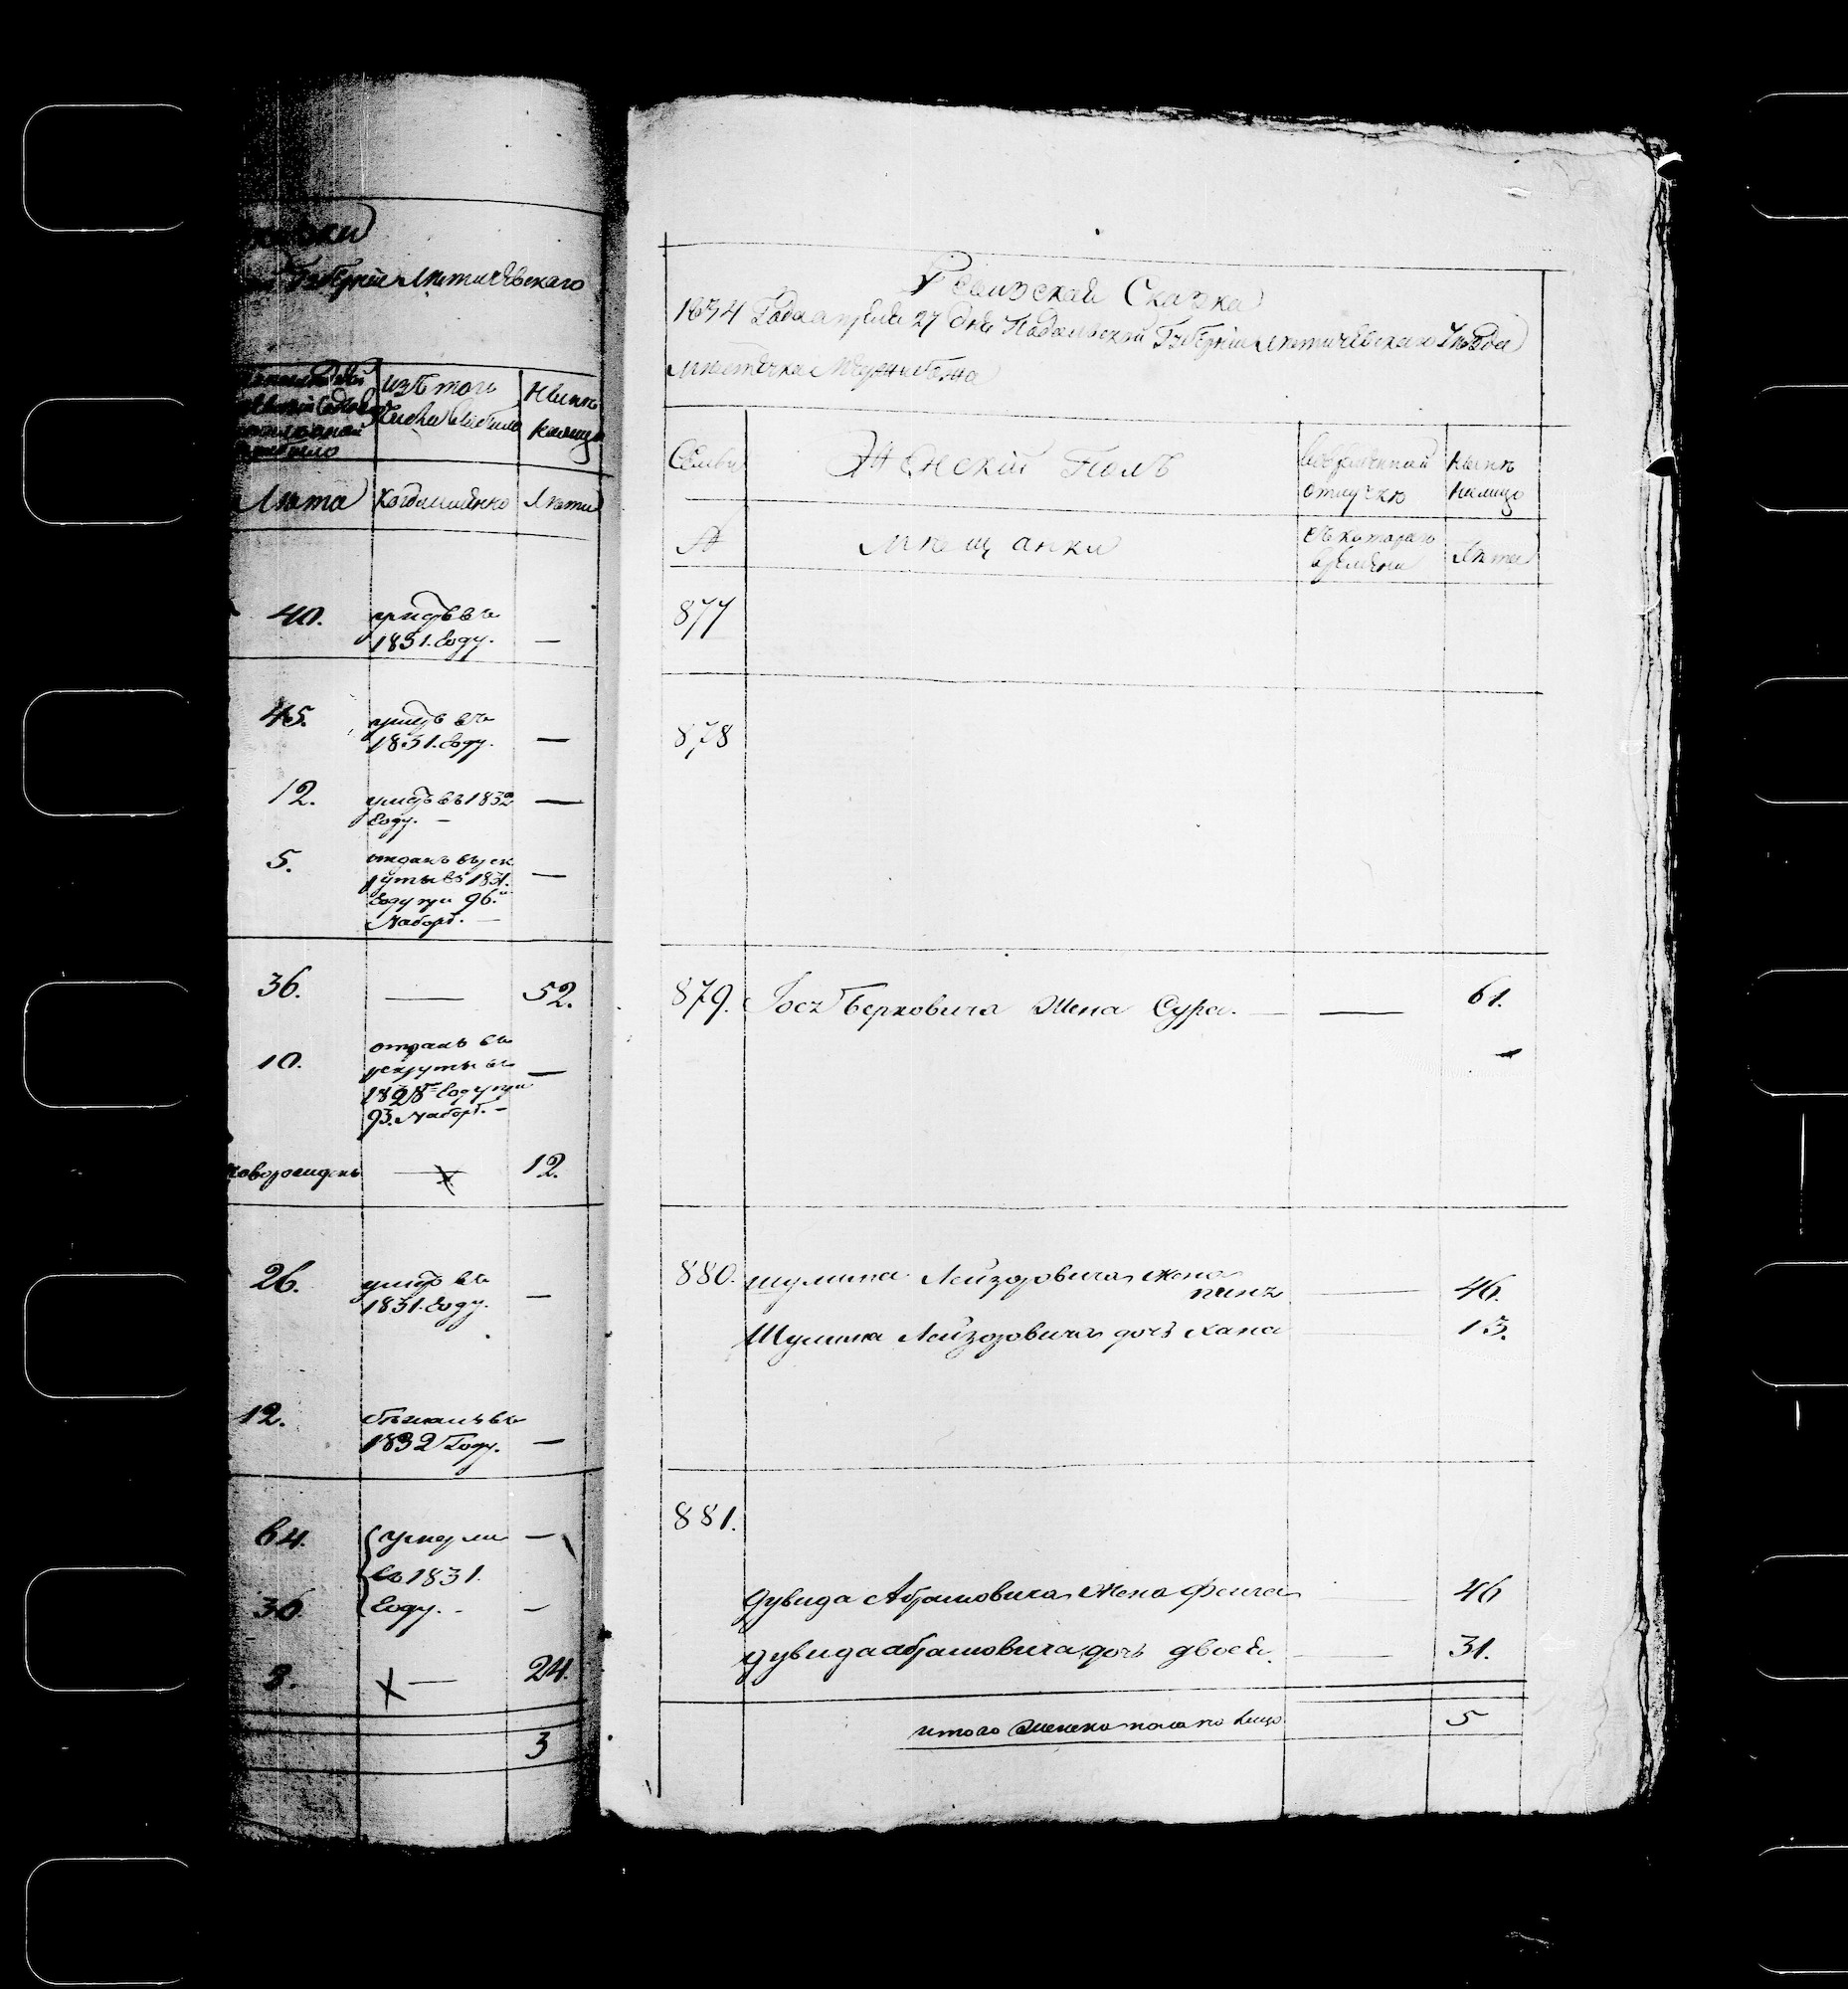 Губерніи Летичевскаго
изъ того числа выбыло
Нынѣ на лицо
Лѣта
Когда именно
Лѣта
40.
умеръ въ 1831. году.
—
45.
умеръ въ 1831. году.
—
12.
умеръ въ 1832 году. —
—
5.
отданъ въ рекруты въ 1831. году при 96.й Наборѣ. —
—
36.
—
52.
10.
отданъ въ рекруты въ 1828 году при 93. Наборѣ. —
—
новорожденъ
—
12.
26.
умеръ въ 1831. году.
—
12.
бѣжалъ въ 1832 году.
—
64.
умерли въ 1831. году. —
—
36.
—
3.
—
24.
3
Ревизская Сказка
1834 Года апреля 27 дня Подольской Губерніи Летичевскаго Уезда
местечка Меджибожа
Семьи
Женскій Полъ
во временной отлучкѣ
Нынѣ налицо
№
мѣщанки
съ котораго времени
Лѣта
877
878
879. Іося Берковича Жена Сура. — — 61.
880. Шулима Лейзоровича жена
— 46.
Шулима Лейзоровича дочь Хана — 13.
881.
Дувида Абрамовича Жена Феига — 46
Дувида Абрамовича дочь Двося. — 31.
итого женска пола на лицо 5